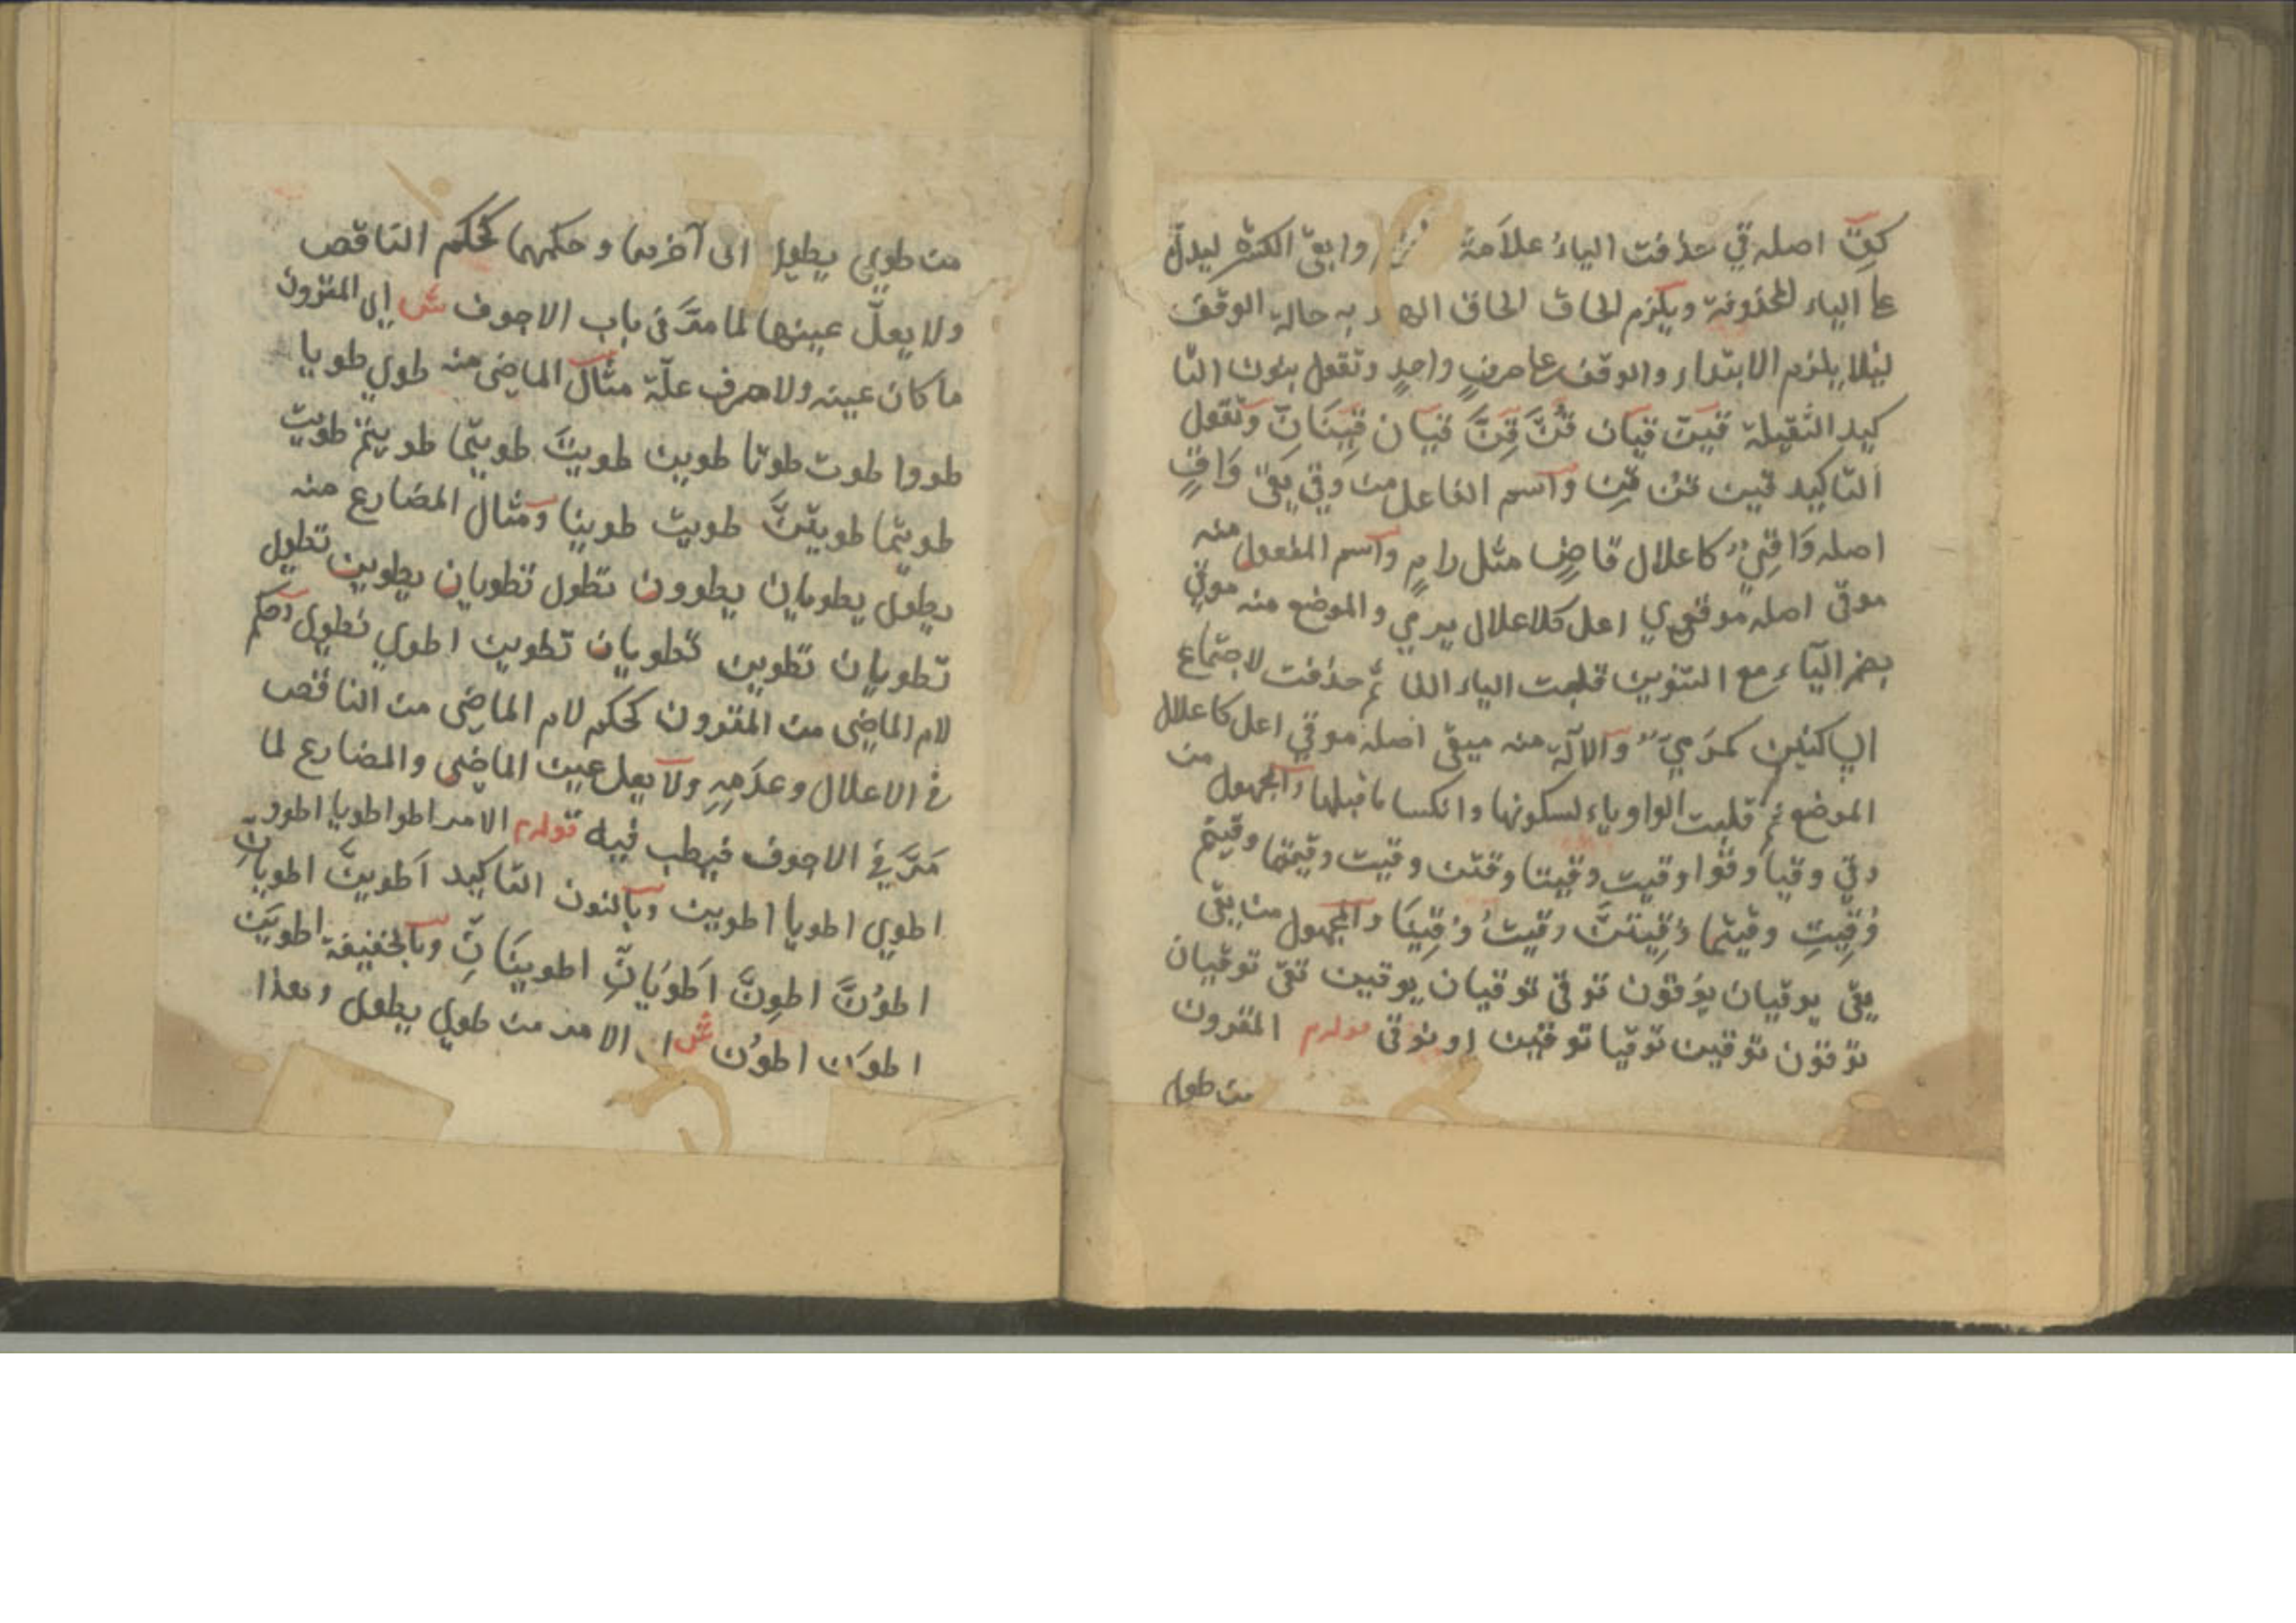 كقِ اصله قي حذفت الياءُ علاَمة وابقى الكسرة ليدلّ
على الياء المحذوفة ويلزم الحاق الحاق الهاء به حالة الوقف
ليلا يلزم الابتداء والوقف على حرفٍ واحدٍ وتقول بنون التا
كيد الثقيلة قيَنّ قيانّ قُنَّ قِنَّ قيانّ قِينَانِّ وتقول
التاكيد قين قُن قِن واسم الفاعل من وَقي يقى وَاقٍ
اصله وَاقِيٌ كاعلال قاضٍ مثل رامٍ واسم المفعول منه
موقى اصله موقوي اعل كلاعلال يرمي والموضع منه موقي
بضم اليآء مع التنوين قلبت الياء الفا ثم حذفت لاجتماع
الساكنين كمَرميً والآلة منه ميقى اصله موقي اعل كاعلال
الموضع ثم قلبت الواو ياء لسكونها وانكسا ما قبلها والمجهول من
وقي وقيا وقُوا وقيت وقيتا وقين وقيت وقيتما وقيتم
وُقِيتِ وقيتما وُقِيتنَّ وقيتُ وُقِينَا والمجهول من يقى
يقى يوقيان يوُقون توقى توقيان يوقين تقى توقيان
توقون توقين توقيا توقين اوقى نوقى قولهم المقرون
من طوى
من طوي يطوي الى آخرهما وحكمهما كحكم الناقص
ولا يعلّ عينهما لما مرَّ فى باب الاجوف ش اى المقرون
ما كان عينه ولامه حرف علّة مثال الماضى منه طوي طويا
طووا طوت طوتا طوين طويتَ طويتما طويتم طويت
طويتما طويتنَّ طويت طوينا ومثال المضارع منه
يطوى يطويان يطوون تطوى تطويان يطوين تطوى
تطويان تطوين تطويان تطوين اطوي نطوى وحكم
لام الماضى من المقرون كحكم لام الماضى من الناقص
فى الاعلال وعدَمِهِ ولا يعل عين الماضى والمضارع لما
مَرَّ في الاجوف فيطلب فيه قولهم الامر اطو اطويا اطوو
اطوي اطويا اطوين وبالنون التاكيد اَطوينَّ اطويانِّ
اطوُنَّ اطوِنَّ اَطوَيَانِّ اطوينَانِّ وبالخفيفة اطويَن
اطوَن اطوُن ش اى الامر من طوي يطوى وهذا